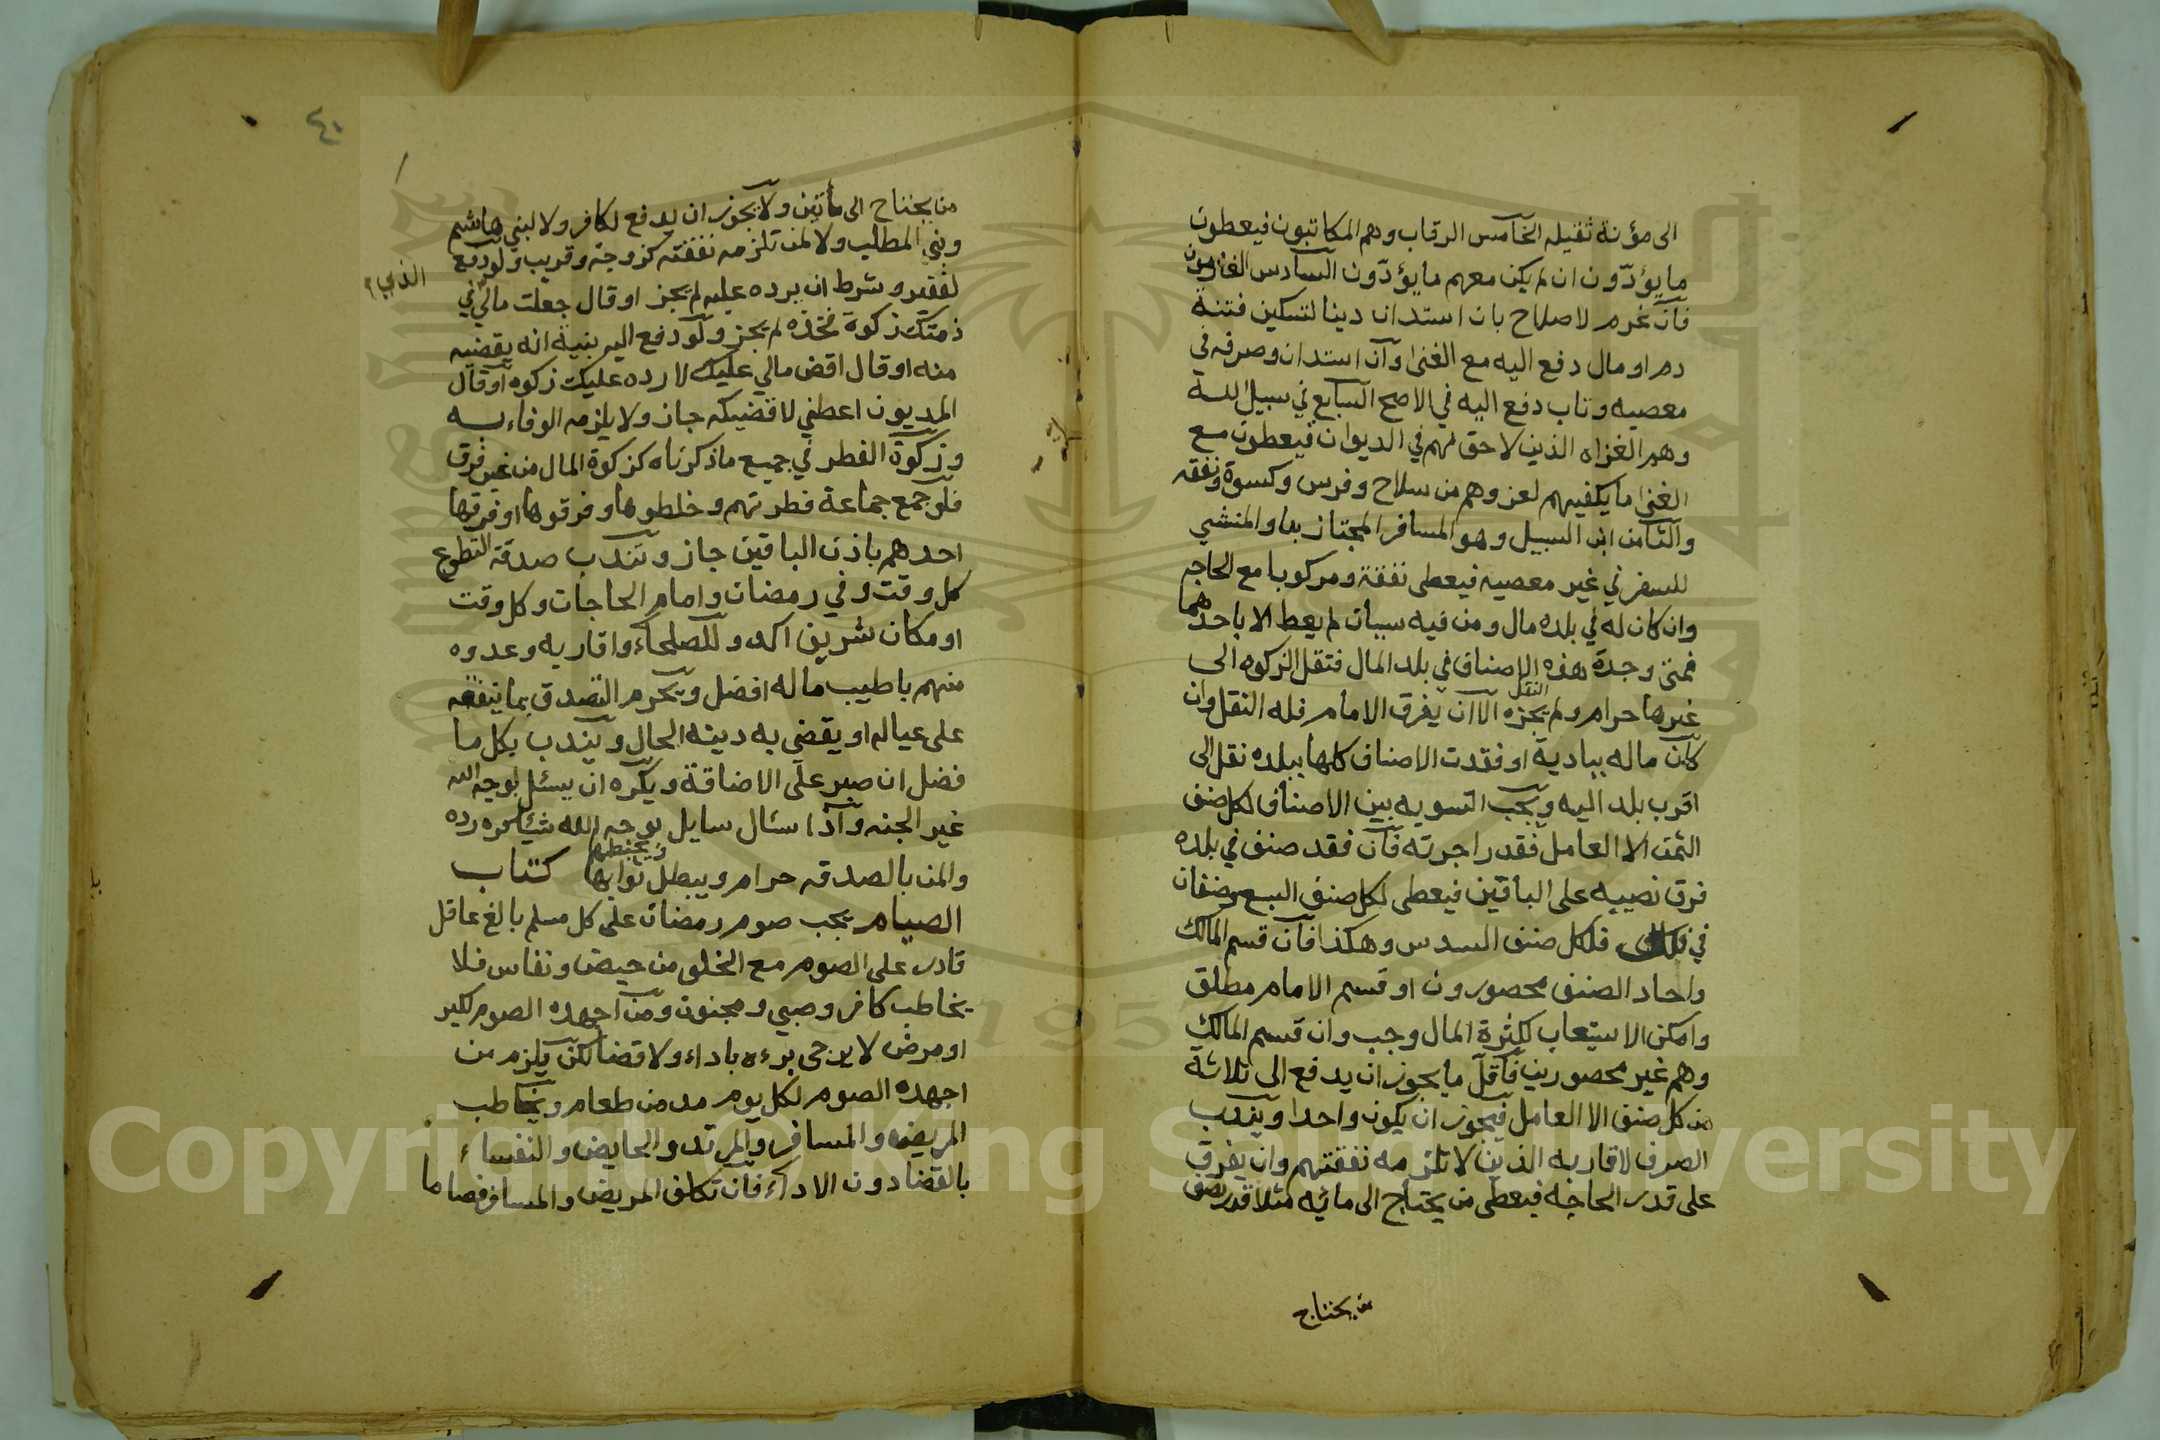 الى مؤنة ثقيله الخامس الرقاب وهم المكاتبون فيعطون
ما يؤدّون ان لم يكن معهم ما يؤدّون السادس الغارمون
فان غرم لاصلاح بان استدان دينا لتسكين فتنة
دم او مال دفع اليه مع الغنى وان استدان وصرفه في
معصيه وتاب دفع اليه في الاصح السابع في سبيل الله
وهم الغزاه الذين لا حق لهم في الديوان فيعطون مع
الغنى ما يكفيهم لغزوهم من سلاح وفرس وكسوة ونفقه
والثامن ابن السبيل وهو المسافر المجتاز بنا والمنشي
للسفر في غير معصيه فيعطى نفقة ومركوبا مع الحاجه
وان كان له في بلده مال ومن فيه سببان لم يعط الا باحدهما
فمتى وجدة هذه الاصناف في بلد المال فنقل الزكوه الى
غيرها حرام ولم يجزه النقل الا ان يفرق الامام فله النقل وان
كان ماله ببادية او فقدت الاصناف كلها ببلده نقل الى
اقرب بلد اليه ويجب التسويه بين الاصناف لكل صنف
الثمن الا العامل فقدر اجرته فان فقد صنف في بلده
فرق نصيبه على الباقين فيعطى لكل صنف السبع وصنفان
فلكل صنف السدس وهكذا فان قسم المالك
واحاد الصنف محصورون او قسم الامام مطلق
وامكن الاستيعاب لكثرة المال وجب وان قسم المالك
وهم غير محصورين فاقل ما يجوز ان يدفع الى ثلاثة
من كل صنف الا العامل فيجوز ان يكون واحدا ويندب
الصرف لاقاربه الذين لا تلزمه نفقتهم وان يفرق
على قدر الحاجه فيعطى من يحتاج الى مائه مثلا قدر نصف
من يحتاج
٤٠
من يحتاج الى مأتين ولا يجوز ان يدفع لكافر ولا لبني هاشم
وبني المطلب ولا لمن تلزمه نفقته كزوجة وقريب ولو دفع
لفقير وشرط ان يرده عليه لم يجز او قال جعلت مالي في
الذي
ذمتك زكوة فخذه لم يجز ولو دفع اليه بنية انه يقضيه
منه او قال اقض مالي عليك لارده عليك زكوه او قال
المديون اعطني لاقضيكه جاز ولا يلزمه الوفاء به
وزكوة الفطر في جميع ما ذكرناه كزكوة المال من غير فرق
فلو جمع جماعة فطرتهم وخلطوها وفرقوها او فرقها
احدهم باذن الباقين جاز وتندب صدقة التطوع
كل وقت وفي رمضان وامام الحاجات وكل وقت
او مكان شريف اكد وللصلحاء واقاربه وعدوه
منهم باطيب ماله افضل ويحرم التصدق بما ينفقه
على عياله او يقضي به دينه الحال ويندب بكل ما
فضل ان صبر على الاضاقة ويكره ان يسئل بوجه الله
غير الجنه واذا سئال سايل بوجه الله شيئا كره رده
والمن بالصدقه حرام ويبطل ثوابها كتاب
الصيام يجب صوم رمضان على كل مسلم بالغ عاقل
قادر على الصوم مع الخلو من حيض ونفاس فلا
يخاطب كافر وصبي ومجنون ومن اجهده الصوم لكبر
او مرض لا يرجى برءه باداء ولا قضا لكن يلزم من
اجهده الصوم لكل يوم مد من طعام ويخاطب
المريض والمسافر والمرتد والحايض والنفساء
بالقضا دون الاداء فان تكلف المريض والمسافر فصاما
Copyright © King Saud University
195